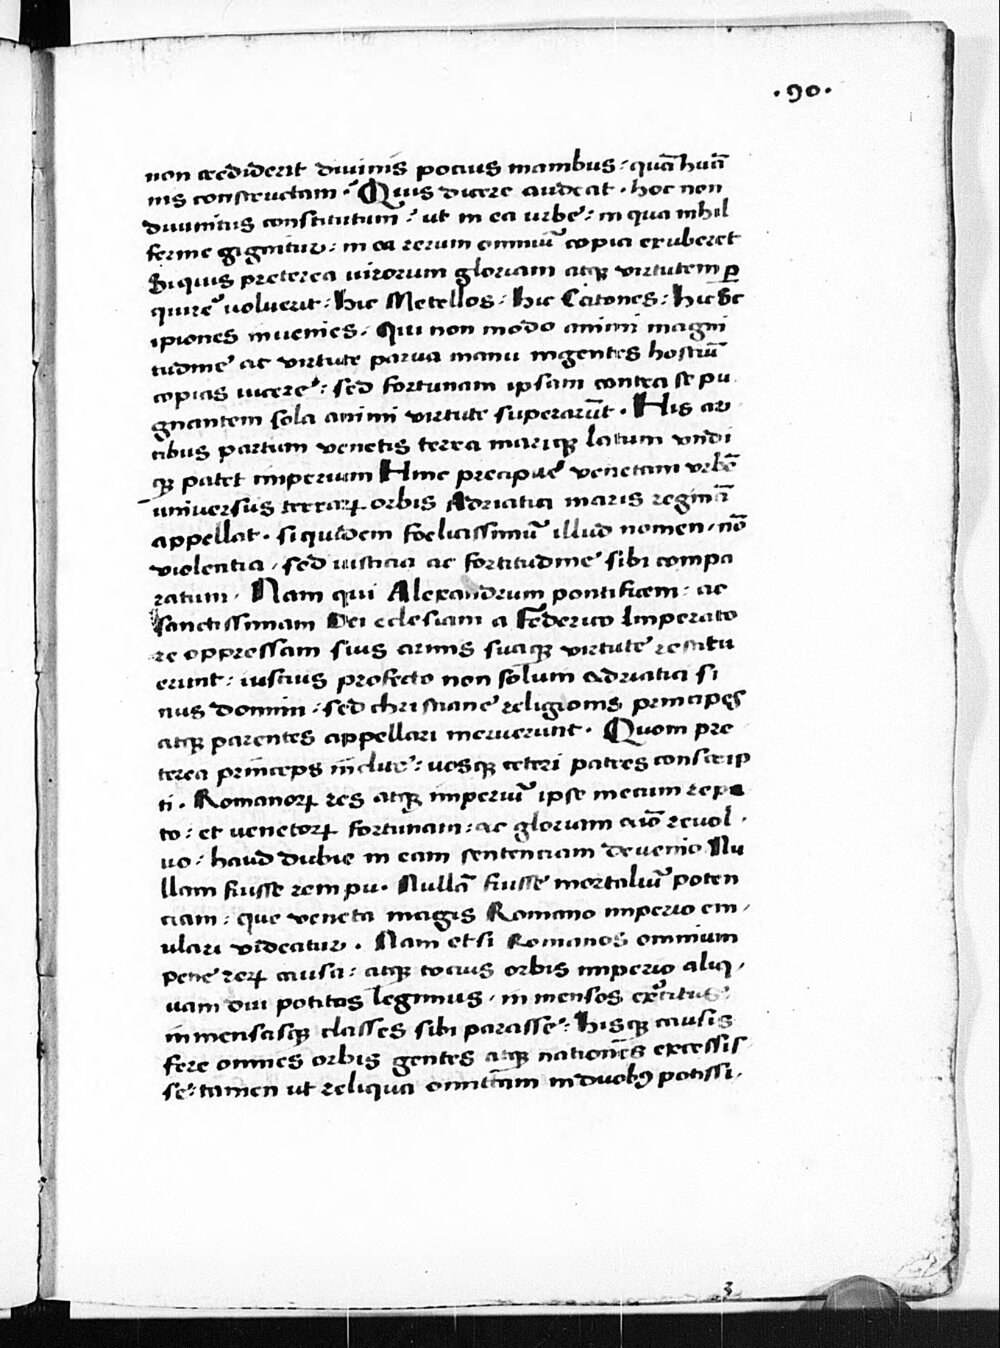 ·90·
non crediderit divinis pocius manibus: quā huā
nis constructam. Quis dicere audeat. hoc non
divinitus constitutum: ut in ea urbe: in qua nihil
ferme gignitur: in ea rerum omniū copia exuberet
Siquis preterea virorum gloriam atqꝫ virtutem ꝑ
quire voluerit: hic Metellos: hic Catones: hic Sc
ipiones invenies. Qui non modo animi magni
tudine ac virtute parva manu ingentes hostiū
copias vicere: sed fortunam ipsam contra se pu
gnantem sola animi virtute superarūt. His ar
tibus partum venetis terra mariqꝫ latum undi
qꝫ patet imperium Hinc precipue venetam urbē
universus terrarꝝ orbis Adriatici maris reginā
appellat. siquidem foelicissimū illud nomen, nō
violentia, sed iusticia ac fortitudine sibi compa
ratum. Nam qui Alexandrum pontificem: ac
sanctissimam Dei eclesiam a Federico Imperato
re oppressam suis armis suaqꝫ virtute restitu
erunt: iustius profecto non solum adriatici si
nus domini, sed christiane religionis principes
atqꝫ parentes appellari meruerunt. Quom pre
terea princeps inclite: vosqꝫ ceteri patres conscrip
ti. Romanorꝝ res atqꝫ imperiū ipse mecum repe
to: et venetorꝝ fortunam: ac gloriam aīo revol,
vo: haud dubie in eam sentenciam devenio Nu
llam fuisse rem pu. Nullā fuisse mortaliū poten
ciam: que veneta magis Romano imperio em,
ulari videatur. Nam etsi Romanos omnium
pene rerꝝ causa: atqꝫ tocius orbis imperio aliq,
uam diu potitos legimus, in mensos exercitus:
inmensasqꝫ classes sibi parasse: hisqꝫ causis
fere omnes orbis gentes atqꝫ nationes excessis
se: tamen ut reliqua omittam in duobꝰ potissi,
3